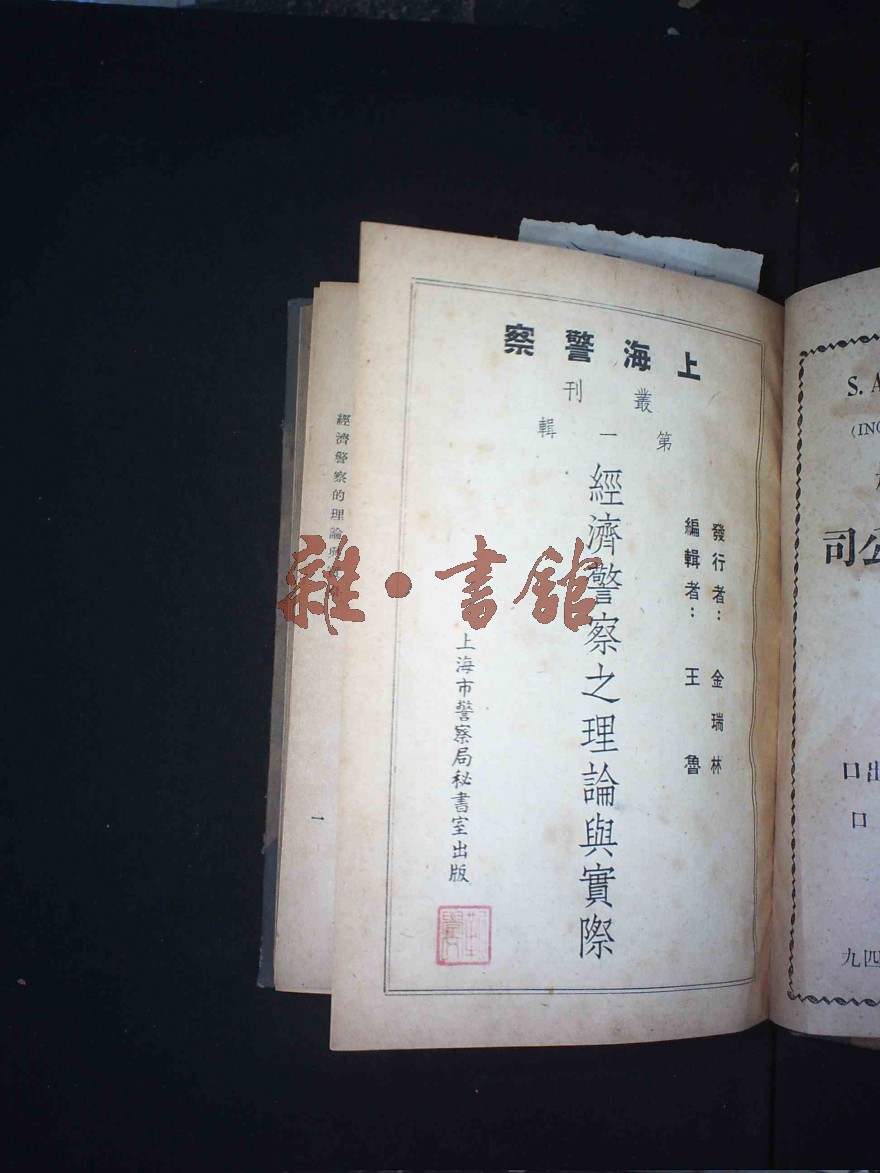 上海警察
叢刊
第一輯
發行者：金瑞林
編輯者：王魯
經濟警察之理論與實際
上海市警察局秘書室出版
經濟警察的理論
一
雜·書館
S. A
(INC
公司
出口
口
九四